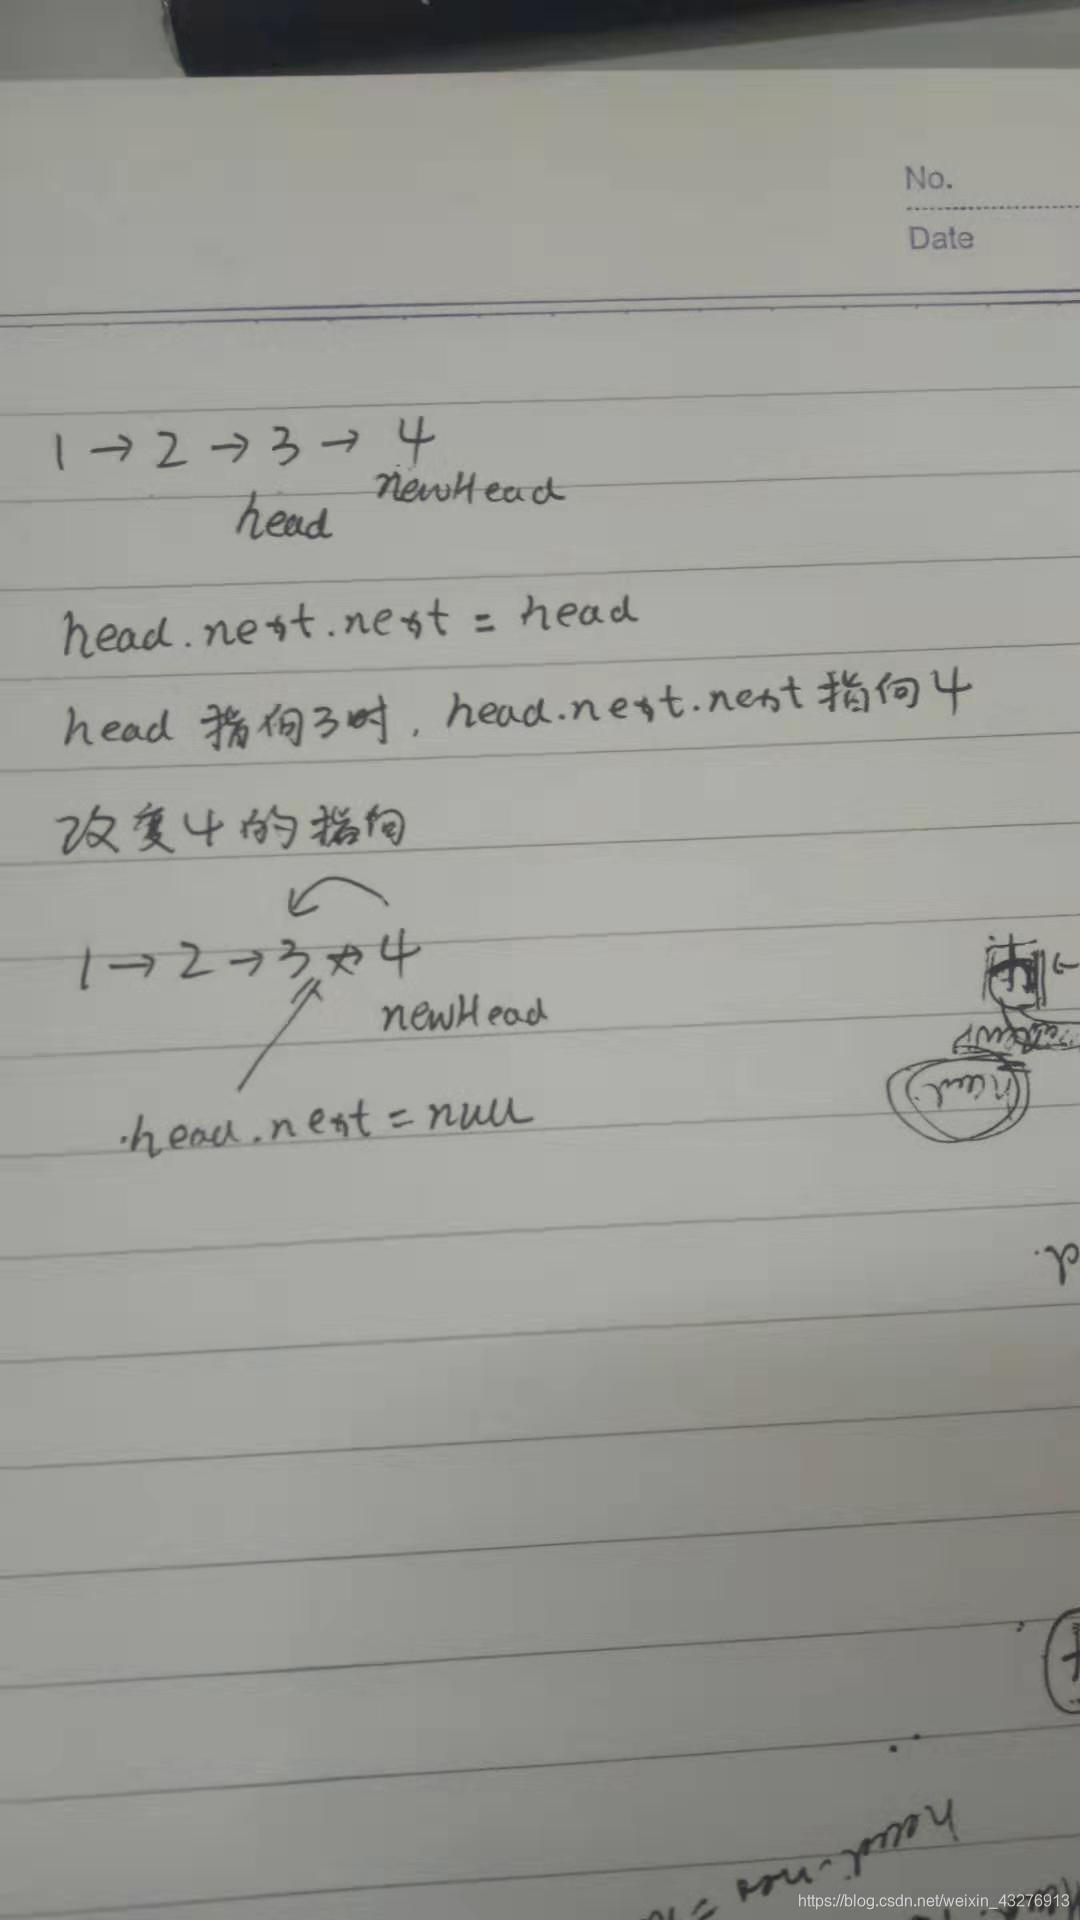 No.
Date
1 → 2 → 3 → 4
newHead
head
head.next.next = head
head 指向3时, head.next.next 指向4
改变4的指向
1 → 2 → 3 → 4
newHead
head.next = null
head
https://blog.csdn.net/weixin_43276913